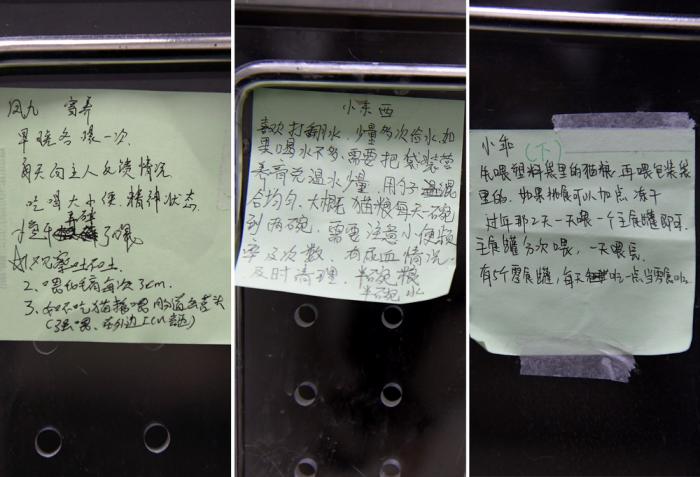 凤九 寄养
早晚各喂一次
每天向主人反馈情况
吃喝大小便.精神状态.
弄碎
了喂
观察吐不吐
2、喂化毛膏每次3cm.
3、如不吃猫粮喂
小东西
喜欢打翻水,少量多次给水,如
果喝水不多,需要把袋装营
养膏兑温水少量,用勺子混
合均匀.大概猫粮每天一碗
到两碗,需要注意小便频
率及次数,有尿血情况
及时清理.半碗粮
半碗水
小乖(下)
先喂塑料袋里的猫粮,再喂包装袋
里的.如果挑食可以加点冻干
过年那2天一天喂一个主食罐即可.
主食罐分次喂,一天喂完
有5个零食罐,每天吃一点当零食吃.